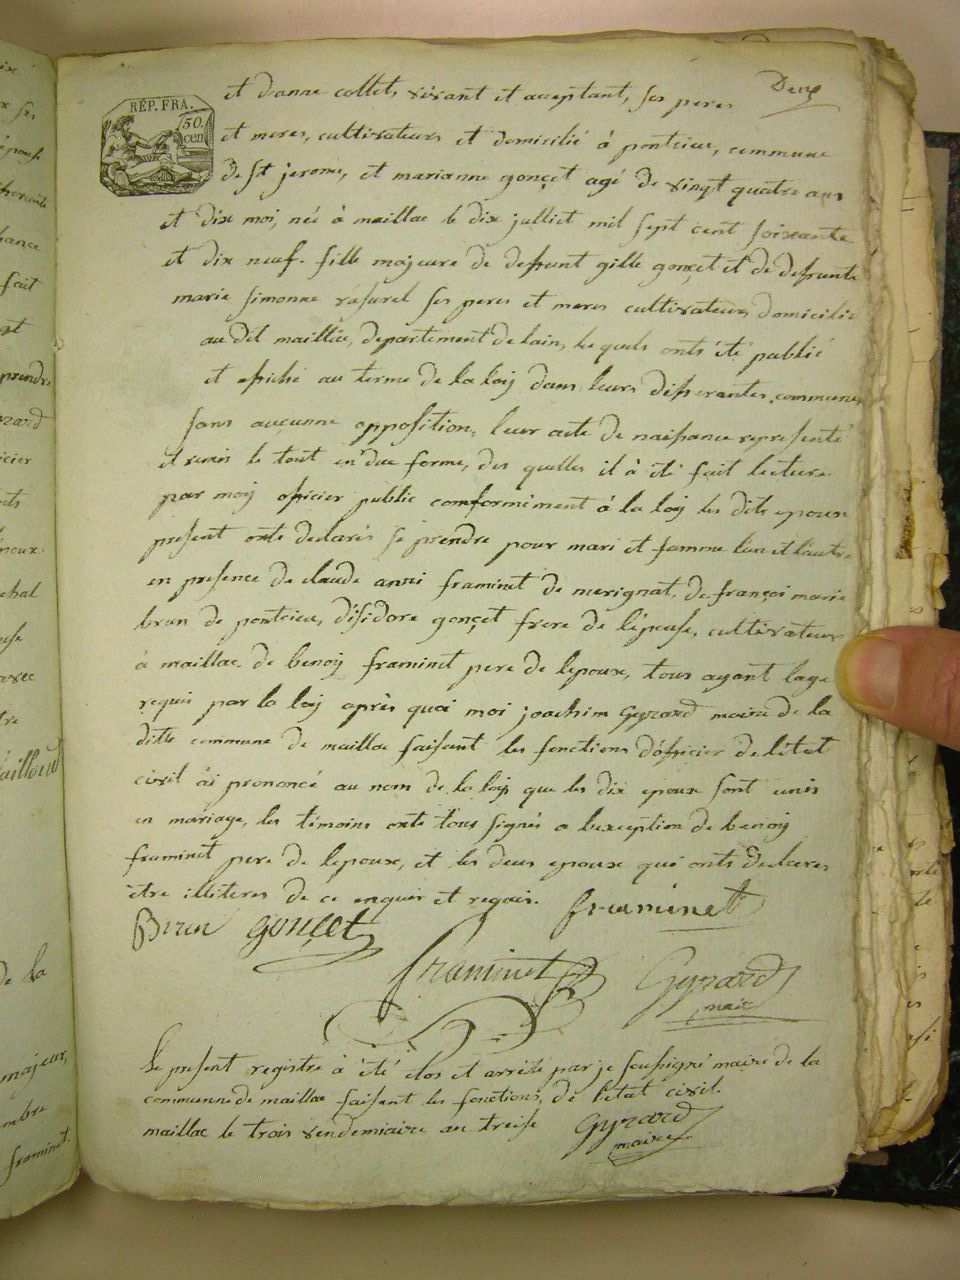 Deux
RÉP. FRA.
50.
cen
et danne collet, vivant et acceptant, ses peres
et meres, cultivateurs et domicilié à pontcieux, commune
de St jerome, et marianne gonçet agé de vingt quatre ans
et dix moi, née à maillac le dix julliet mil sept cent soixante
et dix neuf. fille majeure de defrunt gille gonçet et de defrunte
marie simonne ses peres et meres cultivateurs domicilié
au dit maillac, departement de lain, lequels onts été publié
et afiché au terme de la loij dans leurs differantes communes
sans auçunne opposition, leur acte de naissance representé
et remis le tout en due forme, des quelles il à été fait lecture
par moij oficier public conformément à la loij les dits epoux
present onte declarés se prendre pour mari et famme lun et lautre
en presence de claude anni framinet de merignat, de françoi marie
brun de pontcieux, disidore gonçet frere de lépouse, cultivateur
à maillac de benoij framinet pere de lepoux, tous ayant lage
requis par la loij après quoi moi joachim Gyrard maire de la
ditte commune de maillac faisant les fonctions dóficier de létat
civil ài prononcé au nom de la loij que les dix epoux sont unis
en mariage, les témoins onte tous signés a lexception de benoij
framinet pere de lepoux, et les deux epoux qui onts declares
être illiteres de ce enquis et requis.
framinet
Brun gonçet
framinet
Gyrard
maire
Le present registre à été clos et arrété par je soussigné maire de la
communne de maillac faisant les fonctions, de létat civil.
maillac le trois vendemiaire an treise
Gyrard
maire